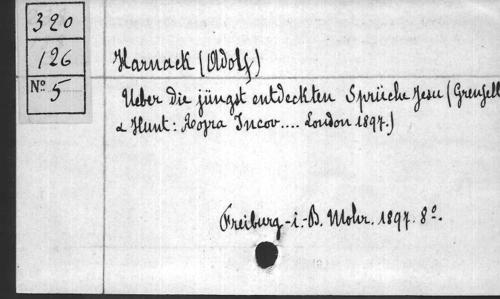 320
126
No 5
Harnack (Adolf)
Ueber die jüngst entdeckten Sprüche Jesu (Grenfell
& Hunt: Λογια Ιησου.... London 1897.)
Freiburg-i.-B. Mohr. 1897. 8o.